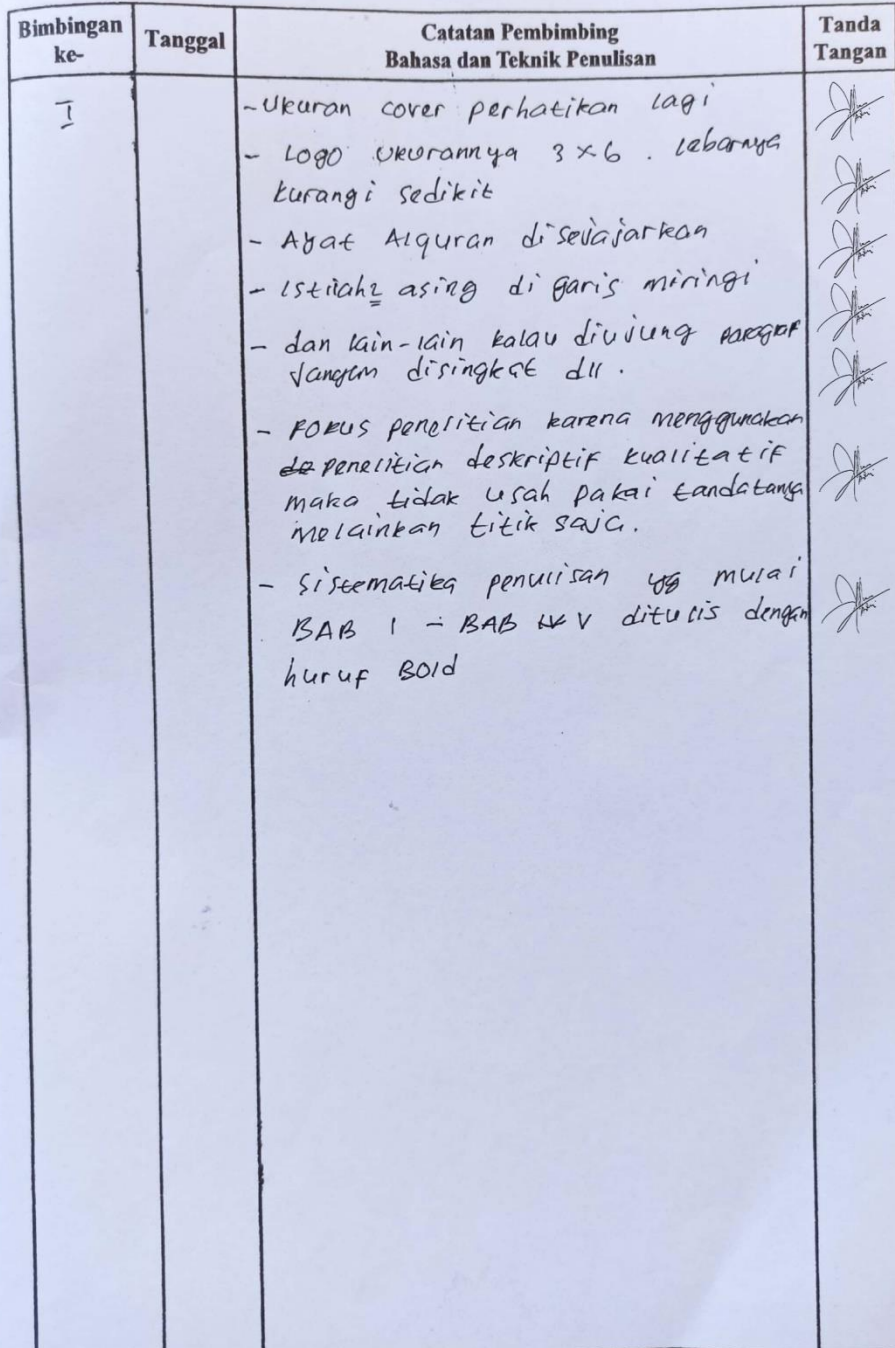 Bimbingan ke-
Tanggal
Catatan Pembimbing
Bahasa dan Teknik Penulisan
Tanda Tangan
I
- Ukuran cover perhatikan lagi
- Logo ukurannya 3 x 6 . lebarnya
kurangi sedikit
- Ayat Alquran disejajarkan
- istilah2 asing di garis miringi
- dan lain-lain kalau diujung paragraf
jangan disingkat dll.
- Fokus penelitian karena menggunakan
de penelitian deskriptif kualitatif
maka tidak usah pakai tandatanya
melainkan titik saja.
- Sistematika penulisan yg mulai
BAB I - BAB V ditulis dengan
huruf Bold